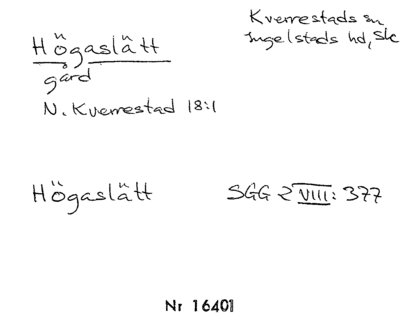 Högaslätt
Kverrestads sn
Ingelstads hd, Sk
gård
N. Kverrestad 18:1
Högaslätt
SGG 2 VIII: 377
Nr 16401